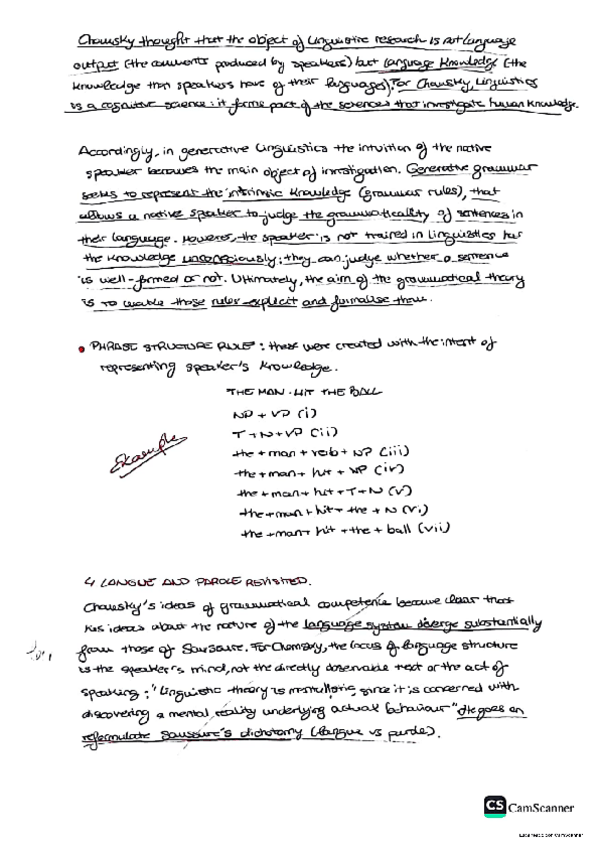 Chomsky thought that the object of linguistic research is not language
output (the comments produced by speakers) but language knowledge (the
knowledge that speakers have of their languages). For Chomsky, Linguistics
is a cognitive science: it forms part of the sciences that investigate human knowledge.
Accordingly, in generative linguistics the intuition of the native
speaker becomes the main object of investigation. Generative grammar
seeks to represent the intrinsic knowledge (grammar rules), that
allows a native speaker to judge the grammaticality of sentences in
their language. However, the speaker is not trained in linguistics has
the knowledge unconsciously; they can judge whether a sentence
is well-formed or not. Ultimately, the aim of the grammatical theory
is to make those rules explicit and formalise them.
• PHRASE STRUCTURE RULE: these were created with the intent of
representing speaker's knowledge.
THE MAN · HIT THE BALL
NP + VP (i)
T + N + VP (ii)
Example
the + man + verb + NP (iii)
the + man + hit + NP (iv)
the + man + hit + T + N (v)
the + man + hit + the + N (vi)
the + man + hit + the + ball (vii)
4 LANGUE AND PAROLE REVISITED.
Chomsky's ideas of grammatical competence became clear that
his ideas about the nature of the language system diverge substantially
from those of Saussure. For Chomsky, the locus of language structure
is the speaker's mind, not the directly observable text or the act of
speaking: "Linguistic theory is mentalistic, since it is concerned with
discovering a mental reality underlying actual behaviour" He goes on
reformulate Saussure's dichotomy (langue vs parole).
CS CamScanner